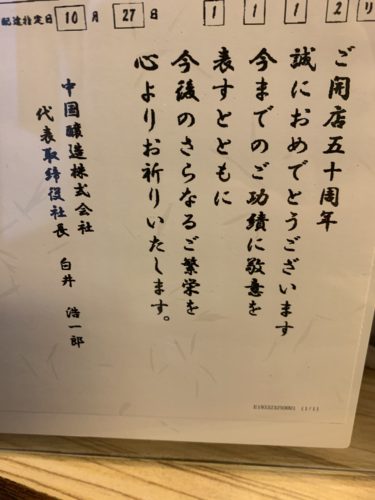 配達指定日 10月 27日 1 1 1 2 リ
ご開店五十周年
誠におめでとうございます
今までのご功績に敬意を
表すとともに
今後のさらなるご繁栄を
心よりお祈りいたします。
中国醸造株式会社
代表取締役社長 白井 浩一郎
(1/1)